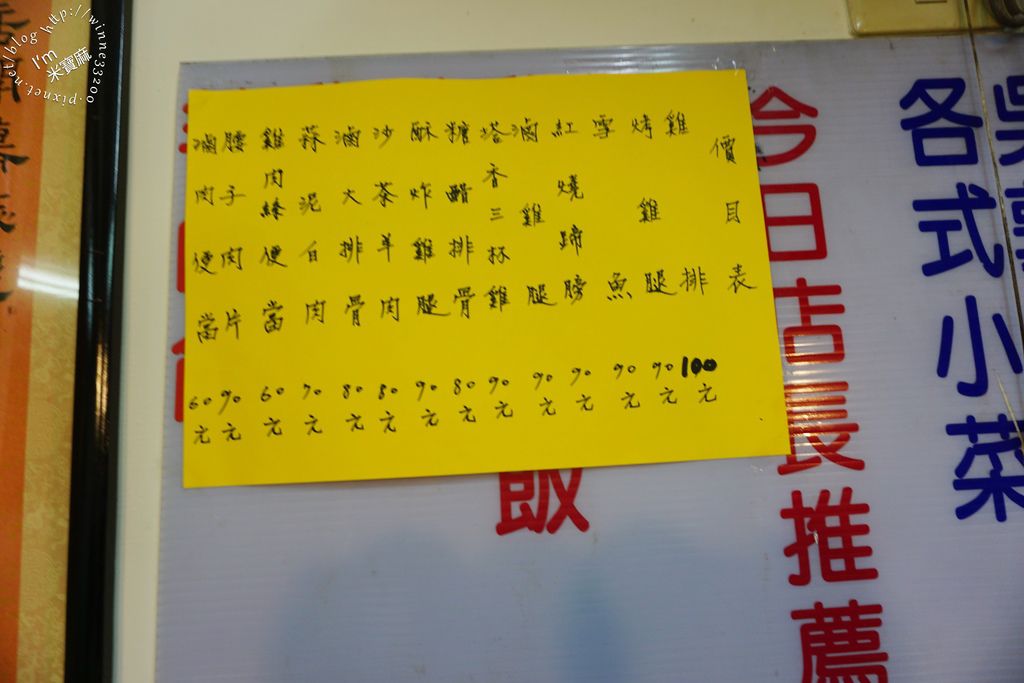 各式小菜
今日店長推薦
飯
價目表
雞排 100元
烤雞腿 90元
雪魚 90元
紅燒蹄膀 90元
滷雞腿 90元
塔香三杯雞 90元
糖醋排骨 80元
酥炸雞腿 90元
沙茶羊肉 80元
滷大排骨 80元
蒜泥白肉 70元
雞肉絲便當 60元
腰子肉片 90元
滷肉便當 60元
I'm
米寶麻
http://winne33200.pixnet.net/blog